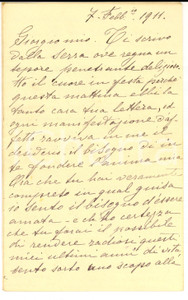 7 Febb. 1911.
Giorgio mio. Ti scrivo
dalla Serra ove regna un
tepore
il cuore in festa perché
questa mattina ebbi la
tanto cara tua lettera, ed
ogni manifestazione d'af-
fetto ravviva in me il
desiderio, il bisogno di
fondere l'anima mia
che tu hai veramente
compreso in qual guisa
io sento il bisogno d'essere
amata - e che ho certezza
che tu farai il possibile
di rendere radiosi questi
miei ultimi anni di vita
sento uno scopo alla